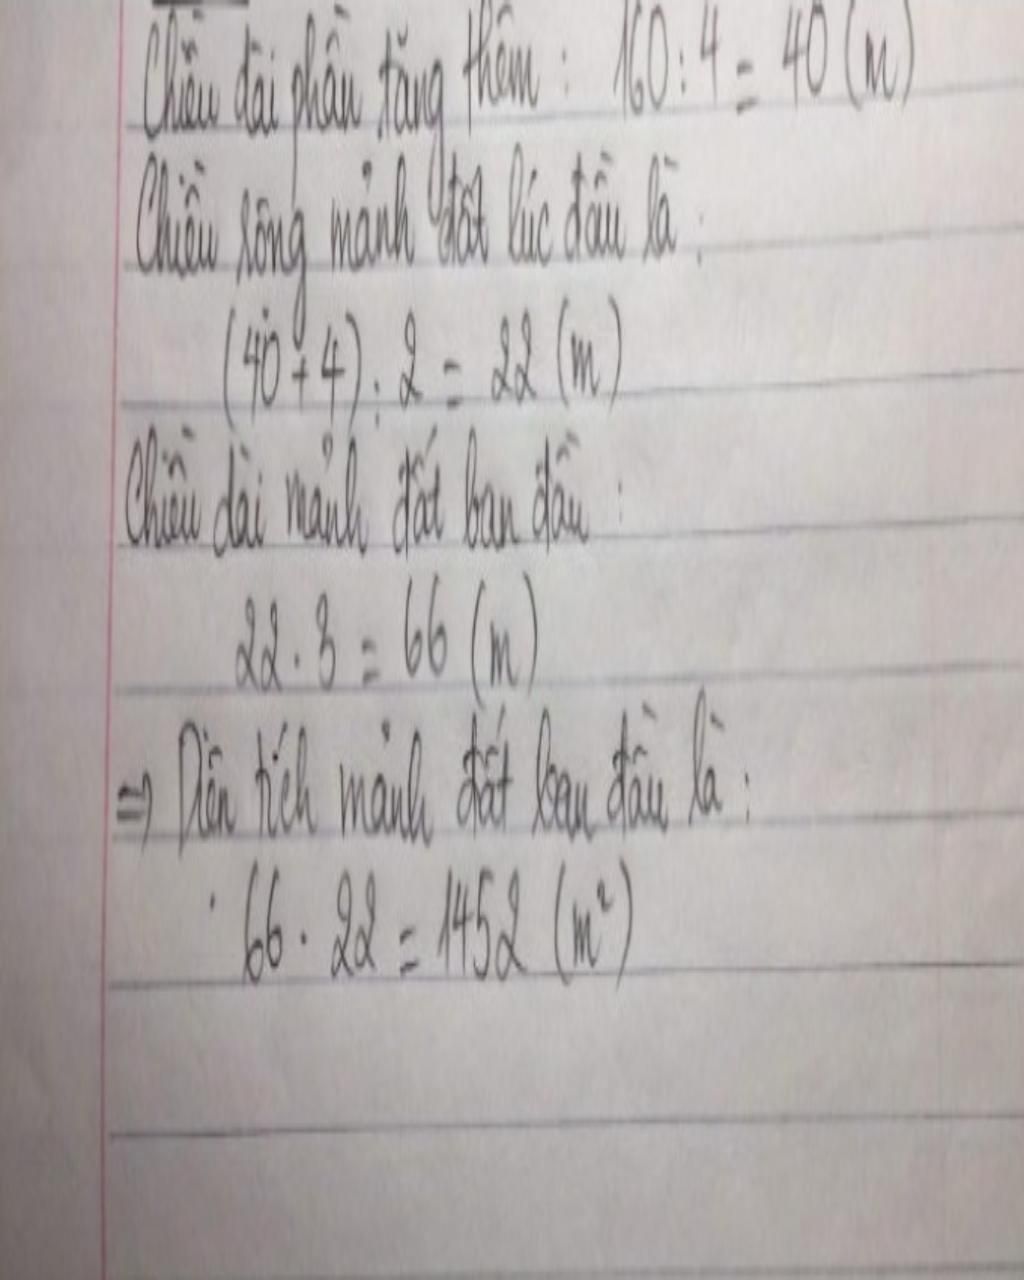 Chiều dài phần tăng thêm : 160 : 4 = 40 (m)
Chiều rộng mảnh đất lúc đầu là :
(40 + 4) : 2 = 22 (m)
Chiều dài mảnh đất ban đầu :
22 . 3 = 66 (m)
⇒ Diện tích mảnh đất ban đầu là :
66 . 22 = 1452 (m²)